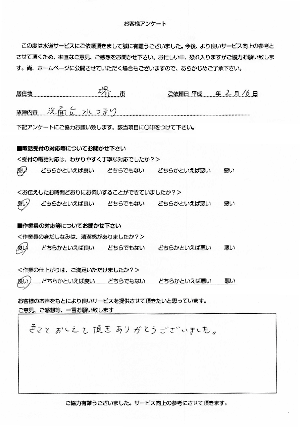 お客様アンケート
この度は水道サービスにご依頼頂きまして誠に有難うございました。今後、より良いサービス向上の参考と
させて頂くため、率直なご意見、ご感想をお聞かせ下さい。お忙しい中、恐れ入りますがご協力お願い致しま
す。尚、ホームページに公開させていただく場合もございますので、あらかじめご了承下さい。
居住地 堺 市 ご依頼日 平成 年 2 月 18 日
依頼内容 洗面台 水つまり
下記アンケートにご協力お願い致します。該当項目に○印をつけて下さい。
■電話受付の対応等についてお聞かせ下さい
<受付の電話対応は、わかりやすく丁寧な対応でしたか?>
良い どちらかといえば良い どちらでもない どちらかといえば悪い 悪い
<お伝えした時間どおりにお伺いすることができていましたか?>
良い どちらかといえば良い どちらでもない どちらかといえば悪い 悪い
■作業員の対応等についてお聞かせ下さい
<作業員の身だしなみは、清潔感がありましたか?>
良い どちらかといえば良い どちらでもない どちらかといえば悪い 悪い
<作業の仕上がりは、ご満足いただけましたか?>
良い どちらかといえば良い どちらでもない どちらかといえば悪い 悪い
お客様のお声をもとにより良いサービスを提供させて頂きたいと思っています。
ご意見、ご感想等、一言お願い致します
おしえて頂きありがとうございました。
ご協力有難うございました。サービス向上の参考にさせて頂きます。